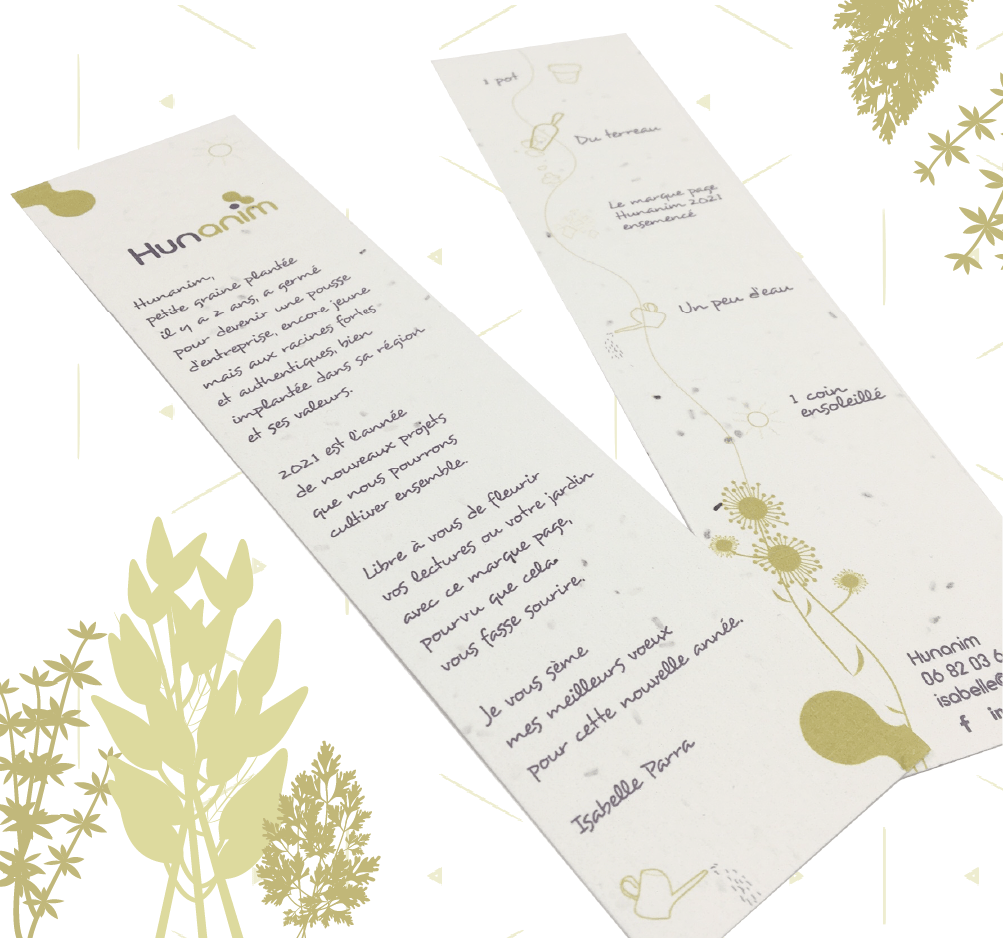 Hunanim
Hunanim,
petite graine plantée
il y a 2 ans, a germé
pour devenir une pousse
d'entreprise, encore jeune
mais aux racines fortes
et authentiques, bien
implantée dans sa région
et ses valeurs.
2021 est l'année
de nouveaux projets
que nous pourrons
cultiver ensemble.
Libre à vous de fleurir
vos lectures ou votre jardin
avec ce marque page,
pourvu que cela
vous fasse sourire.
Je vous sème
mes meilleurs voeux
pour cette nouvelle année.
Isabelle Parra
1 pot
Du terreau
Le marque page
Hunanim 2021
ensemencé
Un peu d'eau
1 coin
ensoleillé
Hunanim
06 82 03 6
isabelle@
f in